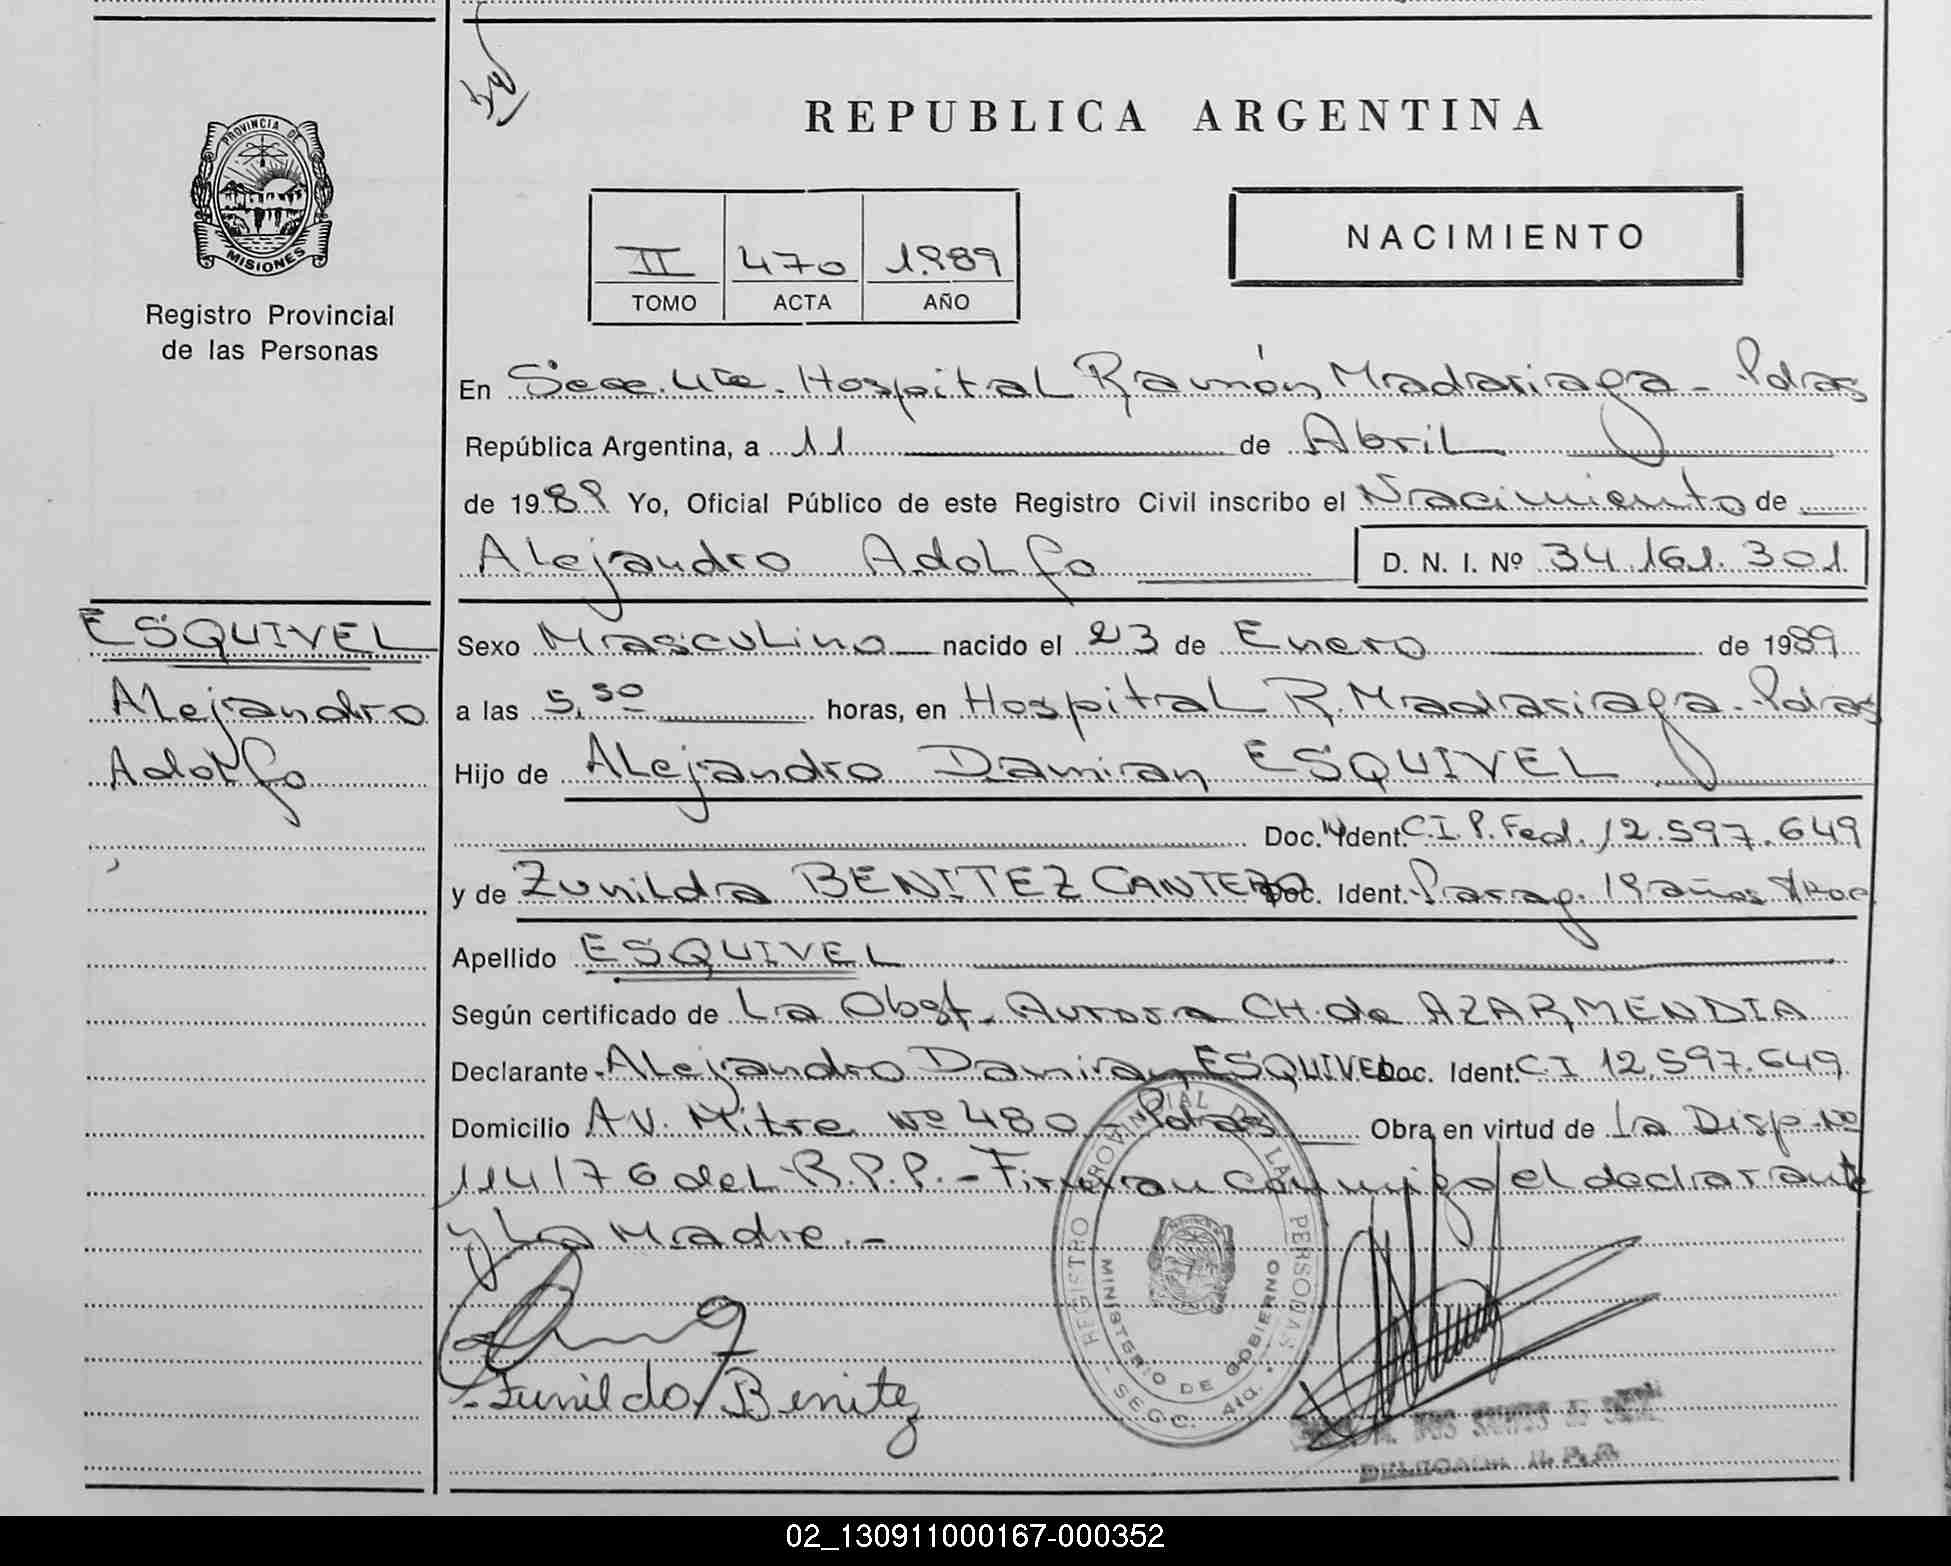 PROVINCIA DE
MISIONES
Registro Provincial
de las Personas
REPUBLICA ARGENTINA
II 470 1.989
TOMO ACTA AÑO
NACIMIENTO
En Secc. 4ta. Hospital Ramón Madariaga - Pdas
República Argentina, a 11 de Abril
de 1989 Yo, Oficial Público de este Registro Civil inscribo el Nacimiento de
Alejandro Adolfo D. N. I. Nº 34.161.301
ESQUIVEL
Alejandro
Adolfo
Sexo Masculino nacido el 23 de Enero de 1989
a las 5,50 horas, en Hospital R. Madariaga - Pdas
Hijo de Alejandro Damian ESQUIVEL
Doc. Ident. C.I. P. Fed. 12.597.649
y de Zunilda BENITEZ CANTERO Doc. Ident. Parag. 19 años
Apellido ESQUIVEL
Según certificado de La Obst. Aurora CH. de AZARMENDIA
Declarante Alejandro Damian ESQUIVEL Doc. Ident. C I 12.597.649
Domicilio AV. Mitre Nº 480 - Pdas Obra en virtud de La Disp. Nº
114/76 del R.P.P. - Firman conmigo el declarante
y La Madre. -
Zunilda Benitez
REGISTRO PROVINCIAL DE LAS PERSONAS
MINISTERIO DE GOBIERNO
SECC. 4ta.
02_130911000167-000352